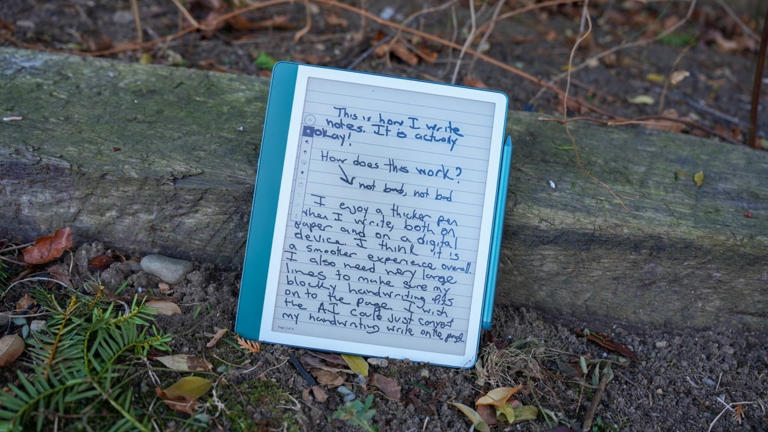 This is how I write
notes. It is actually
okay!
How does this work?
not bad, not bad
I enjoy a thicker pen
when I write, both on
paper and on a digital
device. I think it is
a smooker experience overall.
I also need very large
lines to make sure my
blocky handwriting fits
on to the page. I wish
the AI could just convert
my handwriting write on the page!